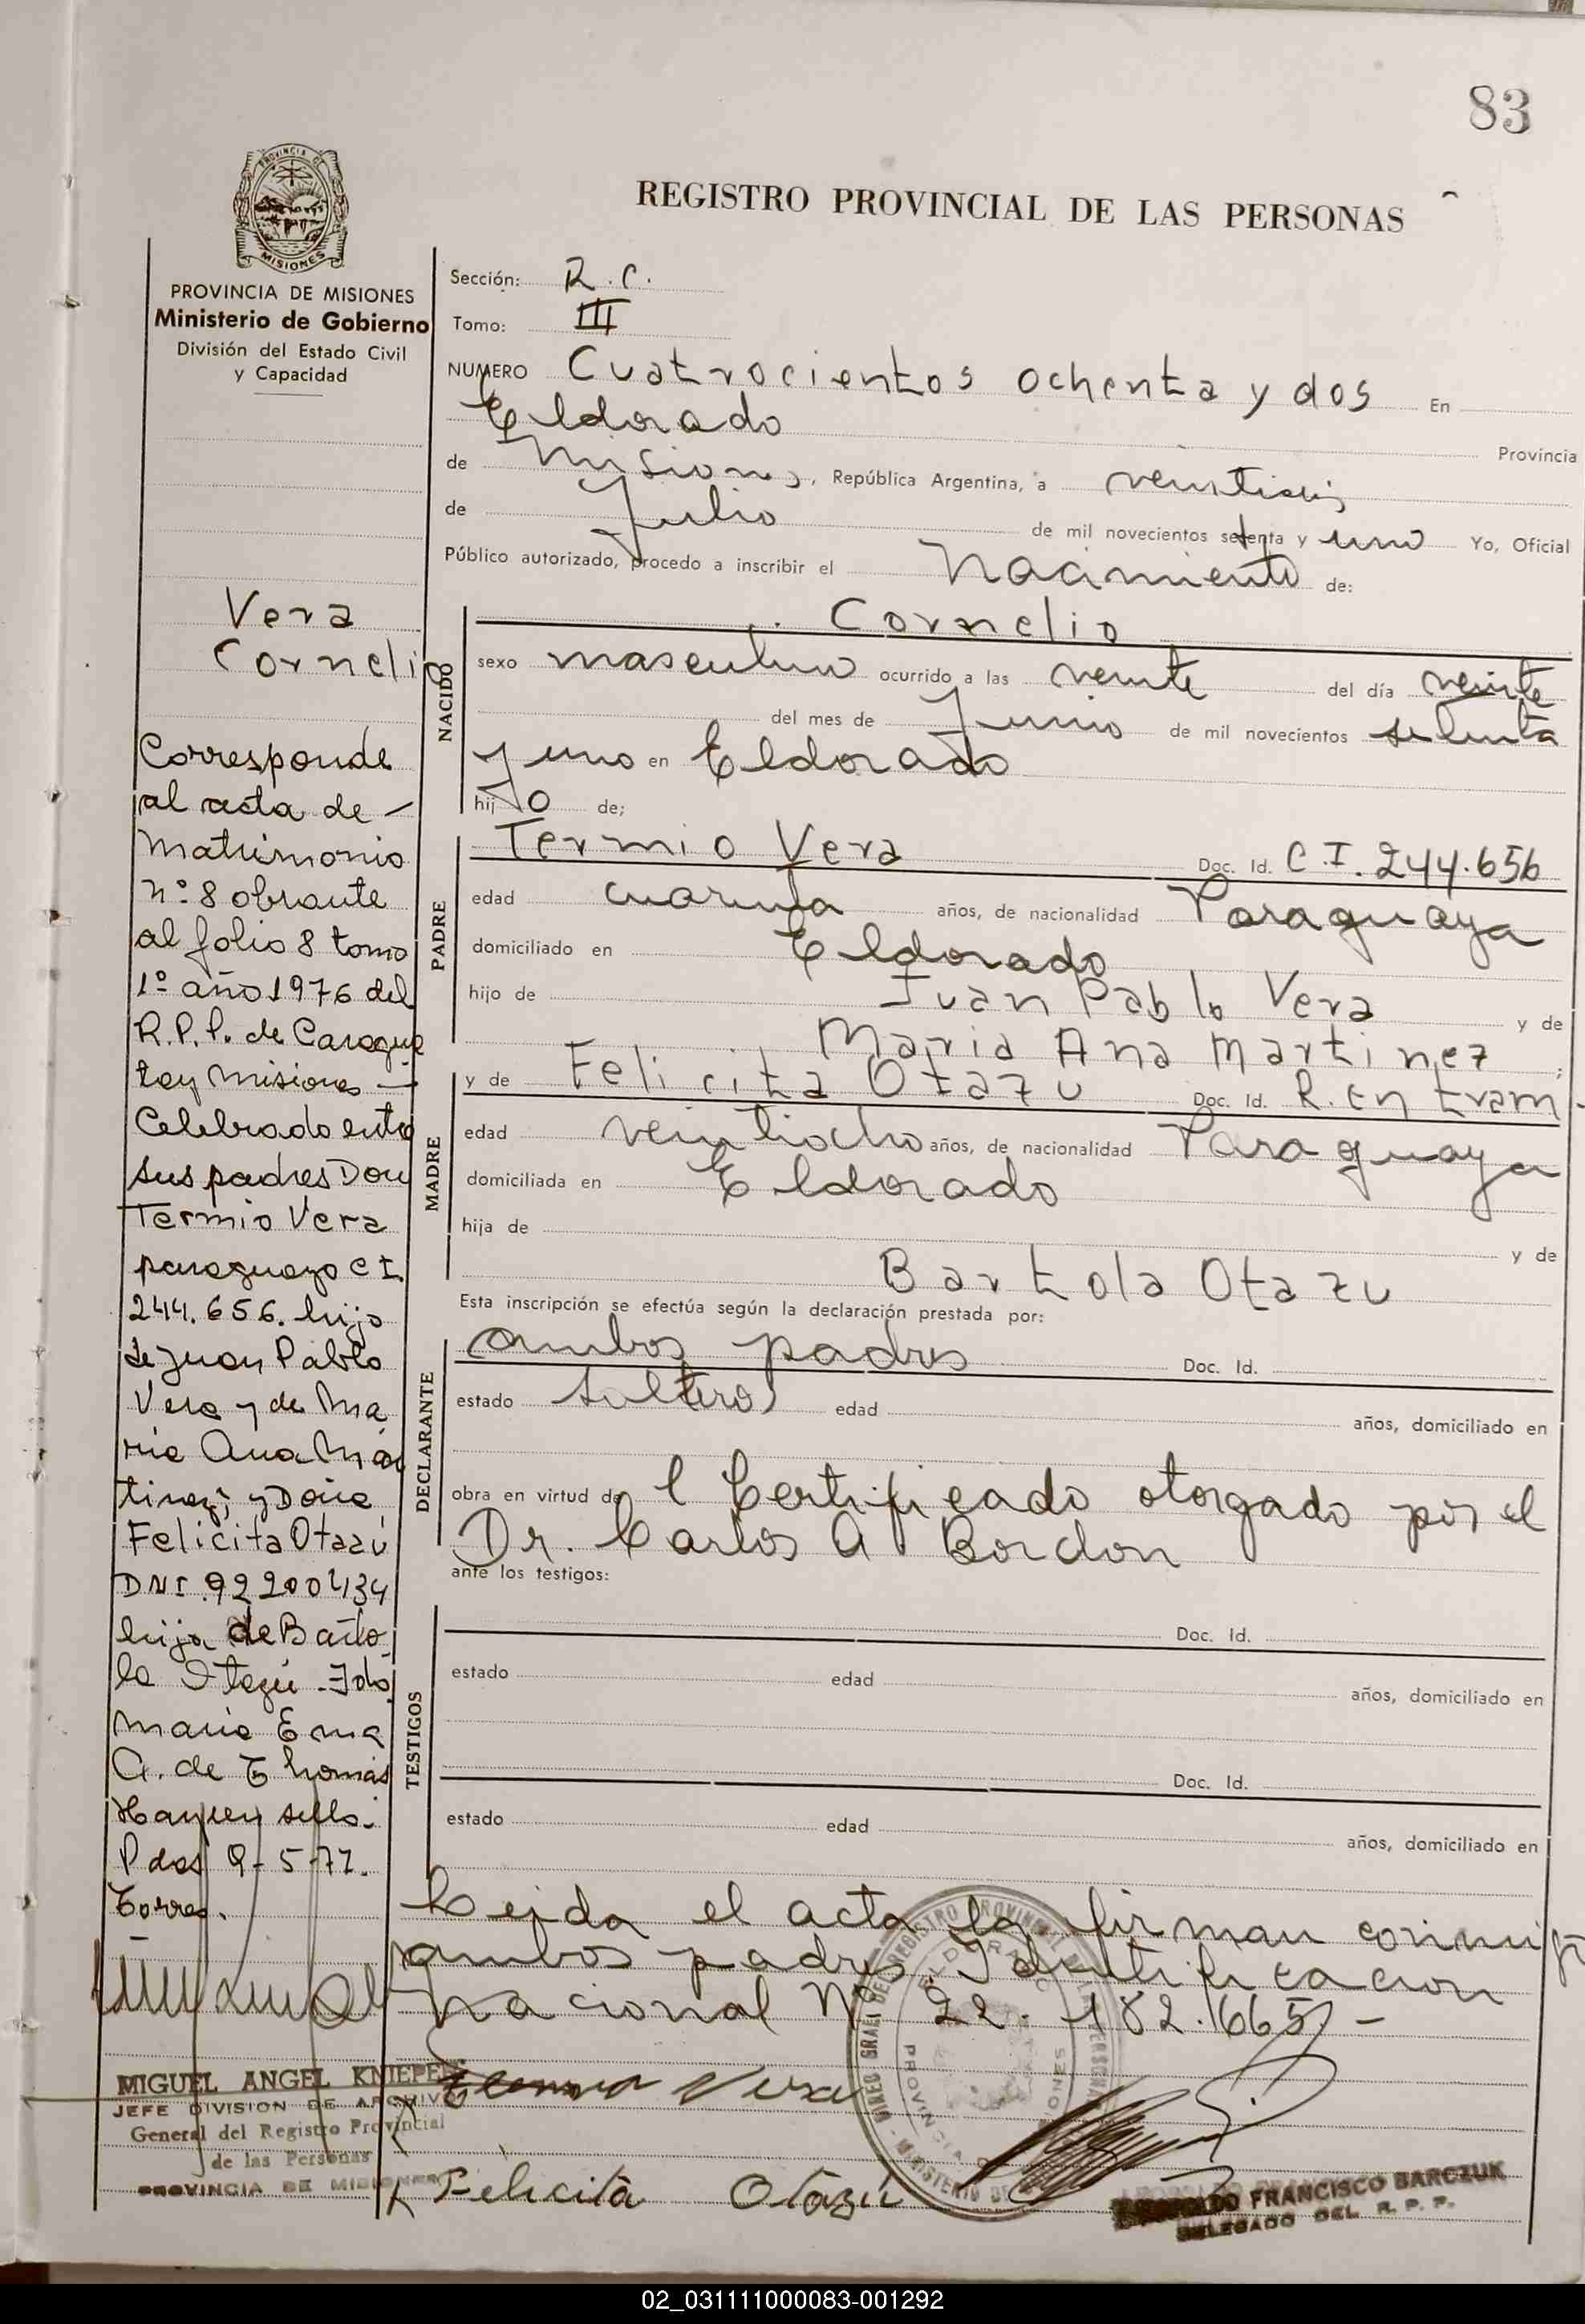 83
PROVINCIA DE
MISIONES
REGISTRO PROVINCIAL DE LAS PERSONAS
PROVINCIA DE MISIONES
Ministerio de Gobierno
División del Estado Civil
y Capacidad
Vera
Cornelio
Corresponde
al acta de –
Matrimonio
n:º 8 obrante
al folio 8 tomo
1º año 1976 del
R.P.P. de Caragua
tay Misiones –
Celebrado entre
sus padres Don
Termio Vera
paraguayo C I.
244.656. hijo
de Juan Pablo
Vera y de Ma
ria Ana Mar
tinez; y Doña
Felicita Otazú
DNI. 92200434
hija de Barto
la Otazú - Fdo
Maria Ema
A. de Thomas
Hay un sello.
Pdas 9-5-77.
Torres.
MIGUEL ANGEL KNIEPEN
JEFE DIVISION DE ARCHIVO
General del Registro Provincial
de las Personas
PROVINCIA DE MISIONES
Sección: R. C.
Tomo: III
NUMERO Cuatrocientos ochenta y dos En
Eldorado Provincia
de Misiones, República Argentina, a veintiseis
de Julio de mil novecientos setenta y uno Yo, Oficial
Público autorizado, procedo a inscribir el Nacimiento de:
NACIDO
Cornelio
sexo masculino ocurrido a las veinte del día veinte
del mes de Junio de mil novecientos setenta
y uno en Eldorado
hijo de;
PADRE
Termio Vera Doc. Id. C.I. 244.656
edad cuarenta años, de nacionalidad Paraguaya
domiciliado en Eldorado
hijo de Juan Pablo Vera y de
Maria Ana Martinez ;
MADRE
y de Felicita Otazu Doc. Id. R. en tram
edad veintiocho años, de nacionalidad Paraguaya
domiciliada en Eldorado
hija de y de
Bartola Otazu
Esta inscripción se efectúa según la declaración prestada por:
DECLARANTE
ambos padres Doc. Id.
estado solteros edad años, domiciliado en
obra en virtud del Certificado otorgado por el
Dr. Carlos A. Bordon
ante los testigos:
TESTIGOS
Doc. Id.
estado edad años, domiciliado en
Doc. Id.
estado edad años, domiciliado en
Leida el acta la firman conmigo
ambos padres. Identificacion
nacional Nº 22.182.665 –
Vera
Felicita Otazú
FRANCISCO BARCZUK
DELEGADO DEL R. P. P.
02_031111000083-001292